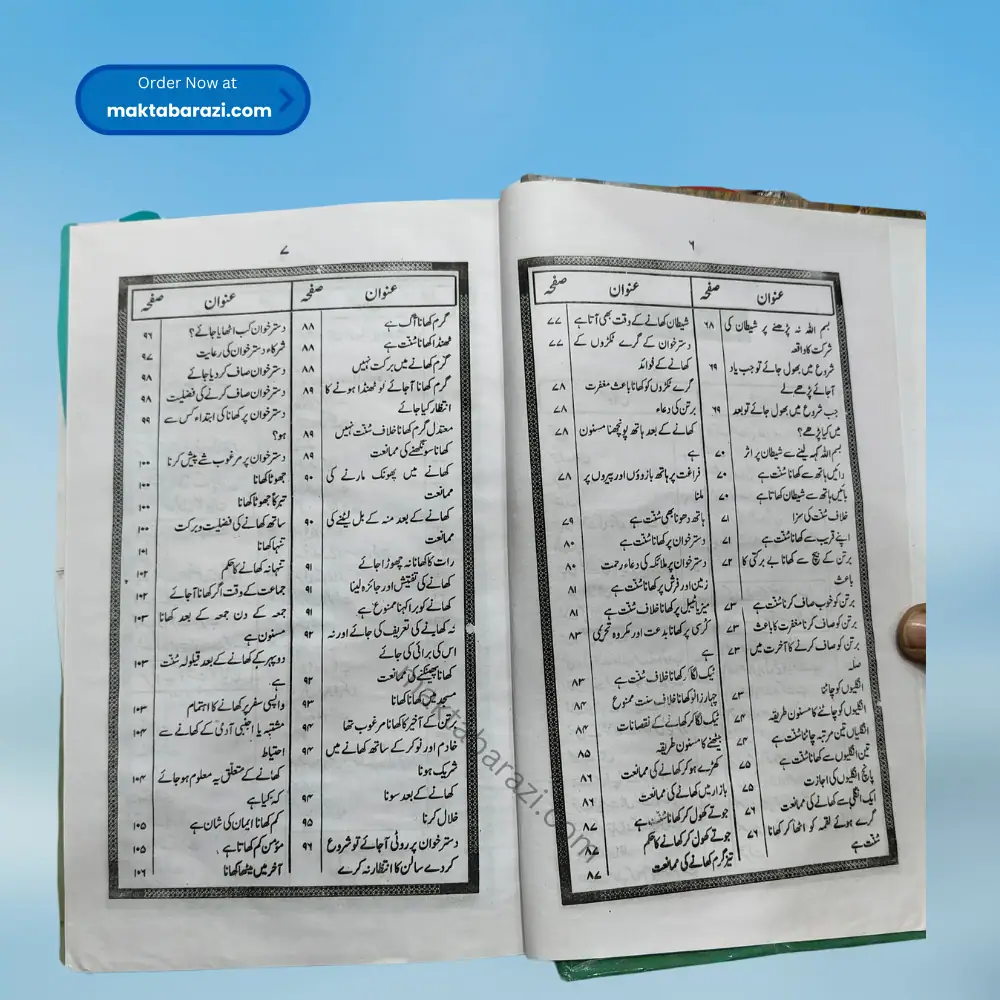 Order Now at
maktabarazi.com
۶
عنوان
صفحہ
بسم اللہ نہ پڑھنے پر شیطان کی
۶۸
شرکت کا واقعہ
شروع میں بھول جائے تو جب یاد
۶۹
آجائے پڑھ لے
جب شروع میں بھول جائے تو بعد
۶۹
میں کیا پڑھے؟
بسم اللہ کہہ لینے سے شیطان پر اثر
۷۰
دائیں ہاتھ سے کھانا سُنّت ہے
۷۰
بائیں ہاتھ سے شیطان کھاتا ہے
۷۰
خلاف سُنّت کی سزا
۷۱
اپنے قریب سے کھانا سُنّت ہے
۷۱
برتن کے بیچ سے کھانا بے برکتی کا
۷۲
باعث
برتن کو خوب صاف کرنا سُنّت ہے
۷۳
برتن کو صاف کرنا مغفرت کا باعث
۷۳
برتن کو صاف کرنے کا آخرت میں
۷۳
صلہ
انگلیوں کو چاٹنا
۷۳
انگلیوں کو چاٹنے کا مسنون طریقہ
۷۴
انگلیاں تین مرتبہ چاٹنا سُنّت ہے
۷۴
تین انگلیوں سے کھانا سُنّت ہے
۷۵
پانچ انگلیوں کی اجازت
۷۵
ایک انگلی سے کھانے کی ممانعت
۷۶
گرے ہوئے لقمہ کو اٹھا کر کھانا
۷۶
سُنّت ہے
عنوان
صفحہ
شیطان کھانے کے وقت بھی آتا ہے
۷۷
دسترخوان کے گرے ٹکڑوں کے
۷۷
کھانے کے فوائد
گرے ٹکڑوں کو کھانا باعث مغفرت
۷۸
برتن کی دعاء
۷۸
کھانے کے بعد ہاتھ پونچھنا مسنون
۷۸
ہے
فراغت پر ہاتھ بازوؤں اور پیروں پر
۷۸
ملنا
ہاتھ دھونا بھی سُنّت ہے
۷۹
دسترخوان پر کھانا سُنّت ہے
۸۰
دسترخوان پر ملائکہ کی دعاء رحمت
۸۰
زمین اور فرش پر کھانا سُنّت ہے
۸۱
میز یا ٹیبل پر کھانا خلاف سُنّت ہے
۸۱
کرسی پر کھانا بدعت اور مکروہ تحریمی
۸۳
ہے
ٹیک لگا کر کھانا خلاف سُنّت ہے
۸۳
چہار زانو کھانا خلاف سنت ممنوع
۸۴
ٹیک لگا کر کھانے کے نقصانات
۸۴
بیٹھنے کا مسنون طریقہ
۸۵
کھڑے ہو کر کھانے کی ممانعت
۸۶
بازار میں کھانے کی ممانعت
۸۶
جوتے کھول کر کھانا ہے
۸۷
جوتے کھول کر کھانے کا حکم
۸۷
تیز گرم کھانے کی ممانعت
۸۷
۷
عنوان
صفحہ
گرم کھانا آگ ہے
۸۸
ٹھنڈا کھانا سُنّت ہے
۸۸
گرم کھانے میں برکت نہیں
۸۸
گرم کھانا آجائے تو ٹھنڈا ہونے کا
۸۹
انتظار کیا جائے
معتدل گرم کھانا خلاف سُنّت نہیں
۸۹
کھانا سونگھنے کی ممانعت
۸۹
کھانے میں پھونک مارنے کی
۹۰
ممانعت
کھانے کے بعد منہ کے بل لیٹنے کی
۹۰
ممانعت
رات کا کھانا نہ چھوڑا جائے
۹۱
کھانے کی تفتیش اور جائزہ لینا
۹۱
کھانے کو برا کہنا ممنوع ہے
۹۱
نہ کھانے کی تعریف کی جائے اور نہ
۹۲
اس کی برائی کی جائے
کھانا پھینکنے کی ممانعت
۹۲
مسجد میں کھانا کھانا
۹۳
برتن کے آخیر کا کھانا مرغوب تھا
۹۴
خادم اور نوکر کے ساتھ کھانے میں
۹۴
شریک ہونا
کھانے کے بعد سونا
۹۴
خلال کرنا
۹۵
دسترخوان پر روٹی آجائے تو شروع
۹۶
کر دے سالن کا انتظار نہ کرے
عنوان
صفحہ
دسترخوان کب اٹھایا جائے؟
۹۶
شرکاء دسترخوان کی رعایت
۹۷
دسترخوان صاف کر دیا جائے
۹۸
دسترخوان صاف کرنے کی فضلیت
۹۸
دسترخوان پر کھانا کی ابتداء کس سے
۹۹
ہو؟
دسترخوان پر مرغوب شے پیش کرنا
۱۰۰
جھوٹا کھانا
۱۰۰
تبرکاً جھوٹا کھانا
۱۰۰
ساتھ کھانے کی فضلیت و برکت
۱۰۰
تنہا کھانا
۱۰۱
تنہا نہ کھانے کا حکم
۱۰۲
جماعت کے وقت اگر کھانا آجائے
۱۰۲
جمعہ کے دن جمعہ کے بعد کھانا
۱۰۳
مسنون ہے
دوپہر کے کھانے کے بعد قیلولہ سُنّت
۱۰۳
ہے
واپسی سفر پر کھانے کا اہتمام
۱۰۳
مشتبہ یا اجنبی آدمی کے کھانے سے
۱۰۴
احتیاط
کھانے کے متعلق یہ معلوم ہو جائے
۱۰۴
کہ کیا ہے
کم کھانا ایمان کی شان ہے
۱۰۵
مؤمن کم کھاتا ہے
۱۰۵
آخر میں میٹھا کھانا
۱۰۶
maktabarazi.com